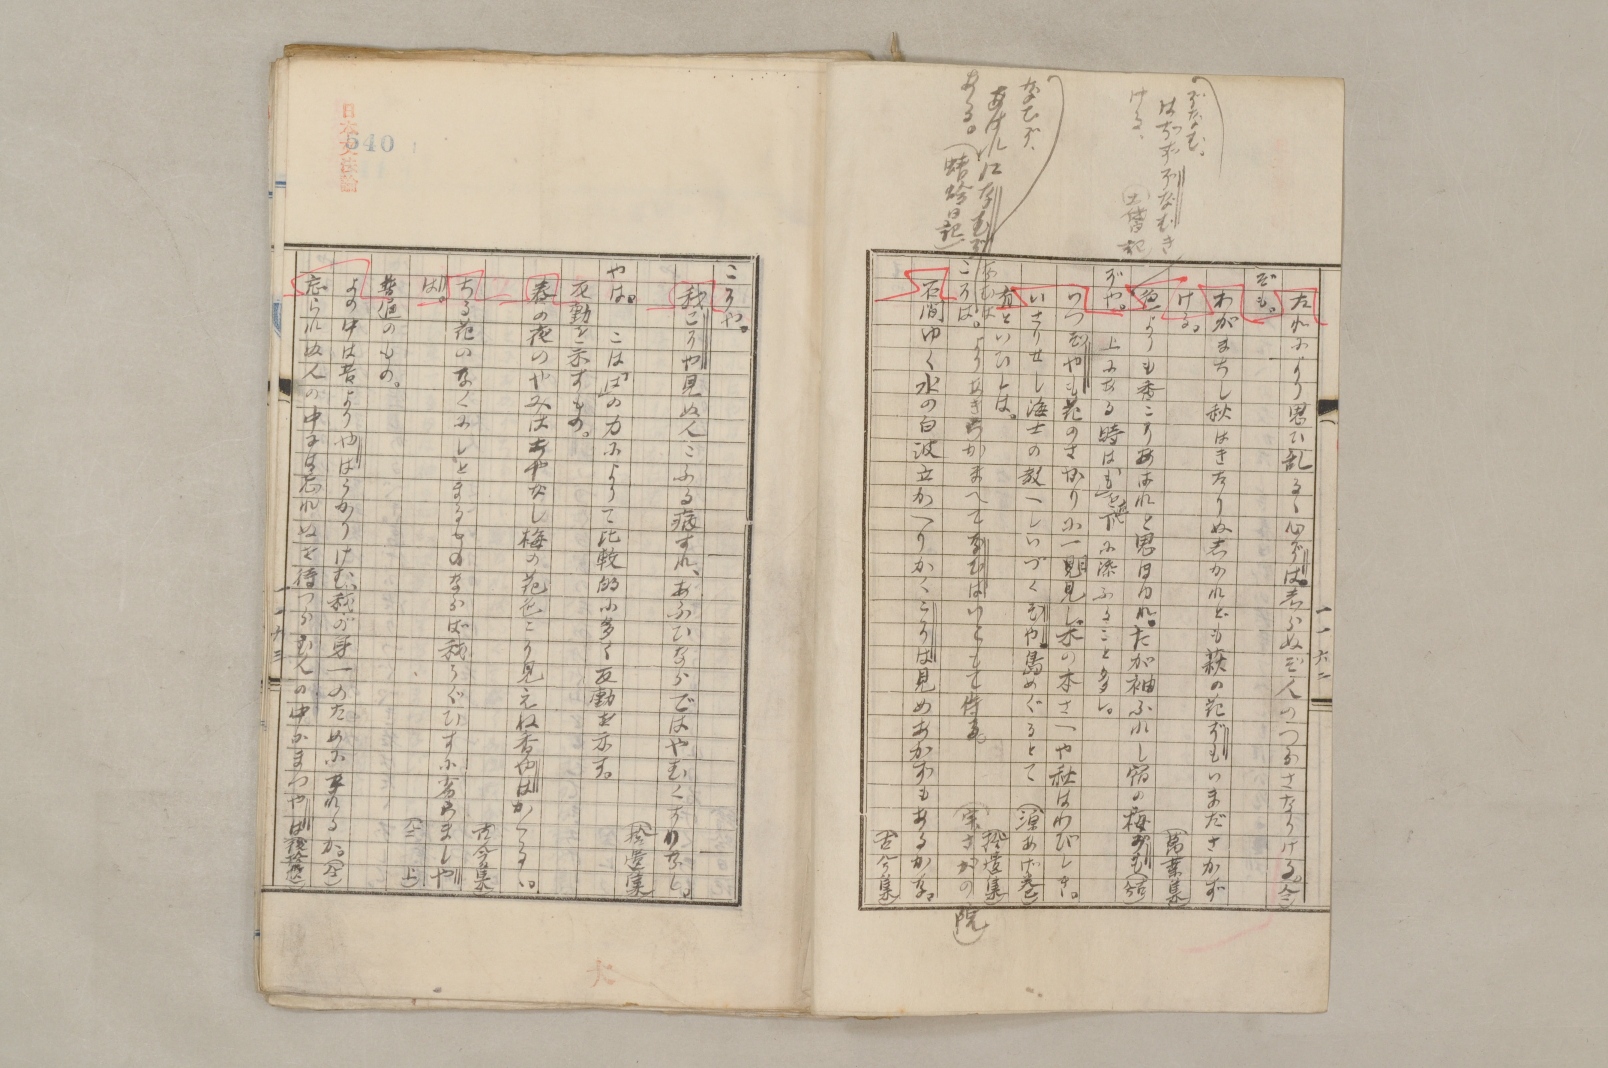 ぞなむ。
はぢずぞなむき
ける、
(土佐日記
なむぞ、
あはれになむぞ
ある。(蜻蛉日記)
たれにより思ひ乱るゝ心ぞは知らぬぞ人のつらさなりける。(仝)
ぞも。
わがまちし秋はきたりぬしかれども萩の花ぞもいまださかず
ける。
(萬葉集)
色よりも香こそあはれと思ほゆれ。たが袖ふれし宿の梅ぞも(古今)
ぞや。
上にある時はもを下に添ふること多し。
いつぞやも花のさかりに一目見し木の本さへや秋はわびしき。
いさりせし海士の教へしいづくぞや島めぐるとて
(源あげ巻)
有といひしは。
(拾遺集)
なむは
こそは。
よりあきらかまへてなむはいともて侍る。
(実さかの院)
石間ゆく水の白波立かへりかくこそは見めあかずもあるかな。
(古今集)
一一六二
日本文法論
540
こそや。
我こそや見ぬ人こふる病すれ、あふひならではやむくすりなし。
(拾遺集)
やは。
こは「は」の力によりて比較的に多く反動を示す。
反動を示すもの。
春の夜のやみはあやなし梅の花色こそ見えね香やはかくるゝ。
(古今集)
ちる花のなくにしとまるものならば我うぐひすにおとらましや
は。
(仝上)
普通のもの。
よの中は昔よりやはうかりけむ、我が身一つのためになれるか。(仝)
忘られぬ人の中には忘れぬを待つらむ人の中にまつやは(後拾遺)
一一六三